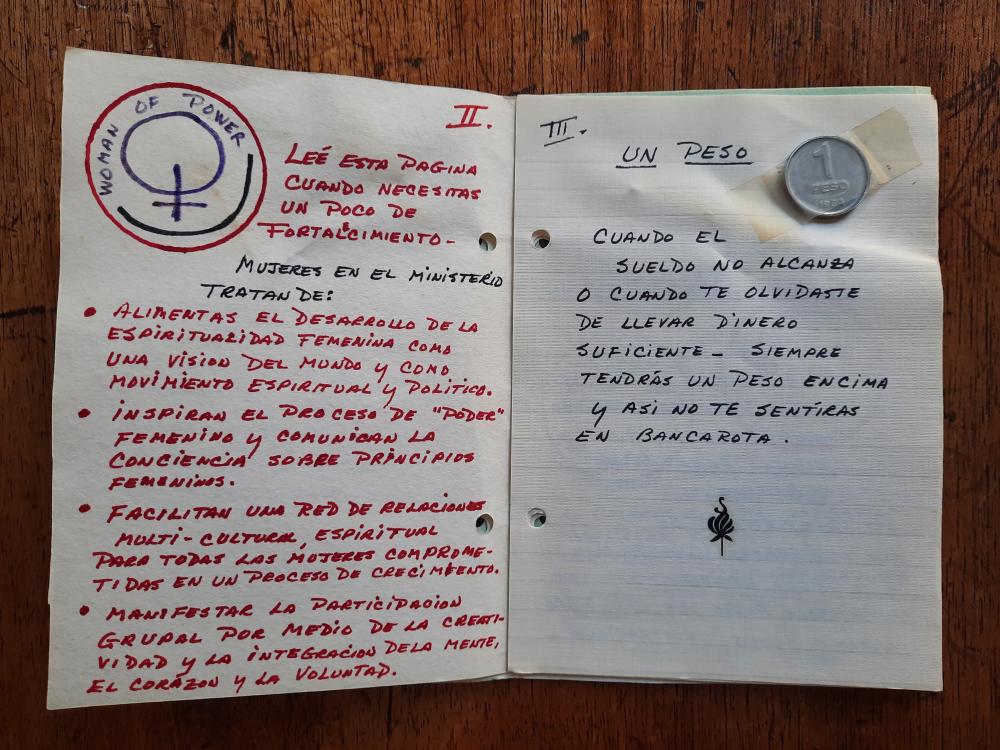 WOMAN OF POWER
II.
LEÉ ESTA PAGINA
CUANDO NECESITAS
UN POCO DE
FORTALECIMIENTO-
MUJERES EN EL MINISTERIO
TRATAN DE:
• ALIMENTAS EL DESARROLLO DE LA
ESPIRITUALIDAD FEMENINA COMO
UNA VISION DEL MUNDO Y COMO
MOVIMIENTO ESPIRITUAL Y POLITICO.
• INSPIRAN EL PROCESO DE "PODER"
FEMENINO Y COMUNICAN LA
CONCIENCIA SOBRE PRINCIPIOS
FEMENINOS.
• FACILITAN UNA RED DE RELACIONES
MULTI-CULTURAL, ESPIRITUAL
PARA TODAS LAS MUJERES COMPROME-
TIDAS EN UN PROCESO DE CRECIMIENTO.
• MANIFESTAR LA PARTICIPACION
GRUPAL POR MEDIO DE LA CREATI-
VIDAD Y LA INTEGRACION DE LA MENTE,
EL CORÁZON Y LA VOLUNTAD.
III.
UN PESO
1
PESO
1984
CUANDO EL
SUELDO NO ALCANZA
O CUANDO TE OLVIDASTE
DE LLEVAR DINERO
SUFICIENTE - SIEMPRE
TENDRÁS UN PESO ENCIMA
Y ASI NO TE SENTIRAS
EN BANCAROTA.